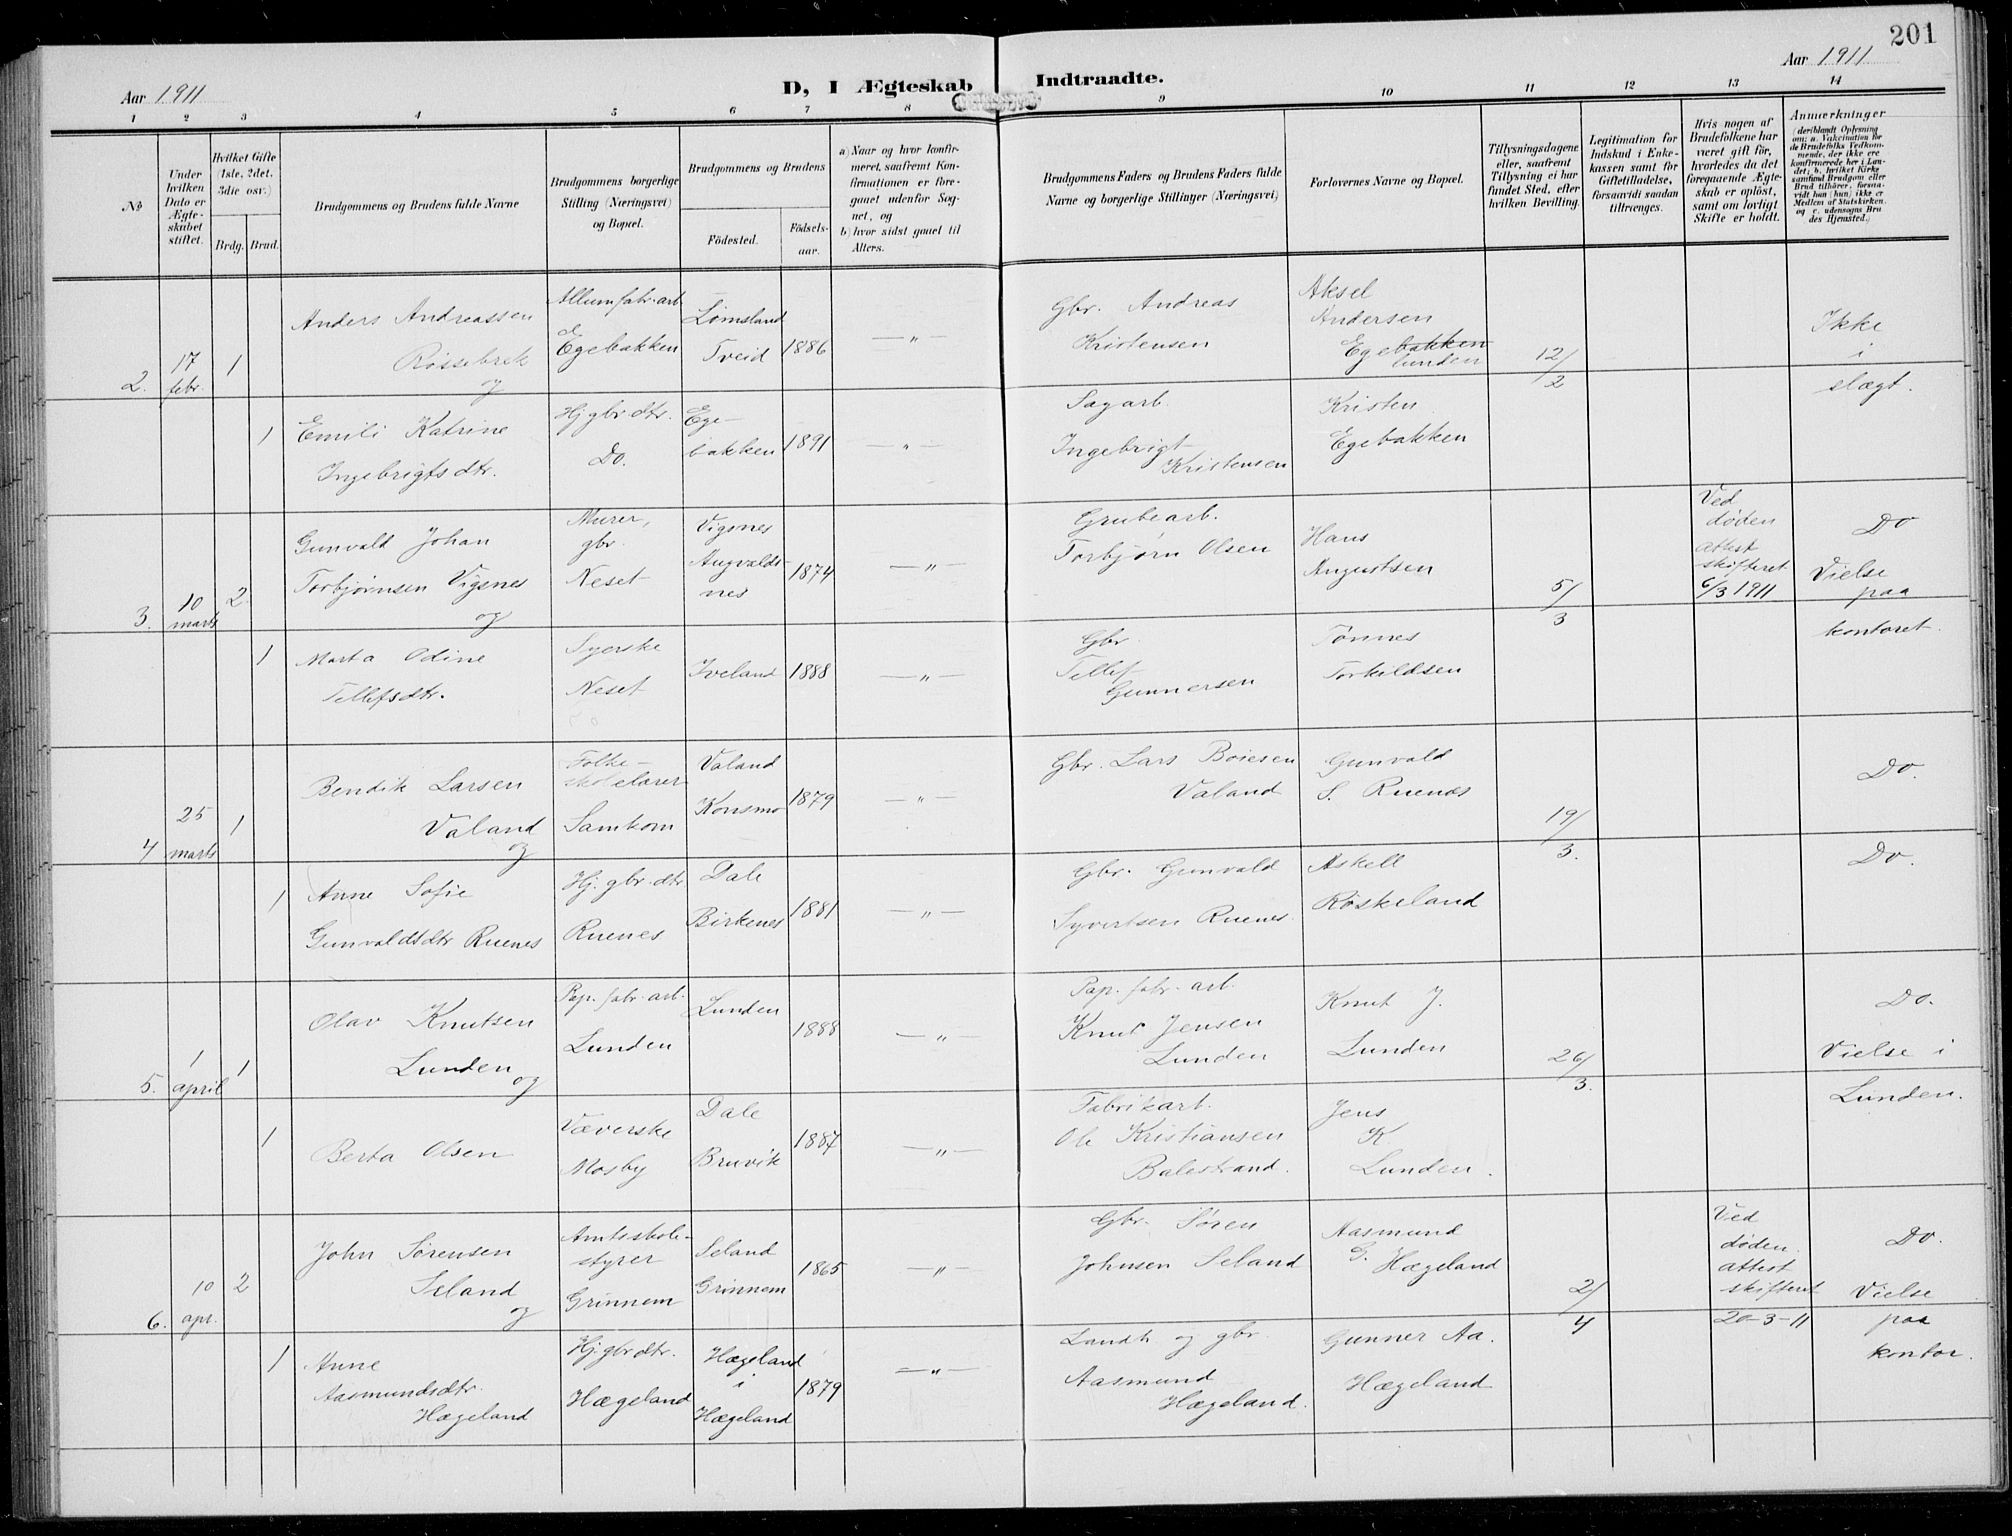 201
Aar 1911
D, I Ægteskab Indtraadte.
Aar 1911
1 2 3 4 5 6 7 8 9 10 11 12 13 14
№
Under hvilken Dato er Ægteskabet stiftet.
Hvilket Gifte (1ste, 2det, 3die osv.)
Brdg. Brud.
Brudgommens og Brudens fulde Navne
Brudgommens borgerlige Stilling (Næringsvei) og Bopæl.
Brudgommens og Brudens
Födested.
Födsels-aar.
a) Naar og hvor konfirmeret, saafremt Konfirmationen er foregaaet udenfor Sognet, og
b) hvor sidst gaaet til Alters.
Brudgommens Faders og Brudens Faders fulde Navne og borgerlige Stillinger (Næringsvei)
Forlovernes Navne og Bopæl.
Tillysningsdagene eller, saafremt Tillysning ei har fundet Sted, efter hvilken Bevilling.
Legitimation for Indskud i Enkekassen samt for Giftetilladelse, forsaavidt saadan tiltrænges.
Hvis nogen af Brudefolkene har været gift før, hvorledes da det foregaaende Ægteskab er oplöst, samt om lovligt Skifte er holdt.
Anmærkninger
(deriblandt Oplysning om: a. Vakcination for de Brudefolks Vedkommende, der ikke ere konfirmerede her i Landet; b. hvilket Kirkesamfund Brudgom eller Brud tilhörer, forsaavidt han (hun) ikke er Medlem af Statskirken, og c. udensogns Brudes Hjemsted.)
2. 17 febr. 1
Anders Andreassen Røssebrek og
Allum.fabr.arb Egebakken
Lømsland Tveid
1886
— " —
Gbr. Andreas Kristensen
Aksel Andersen Egebakken lunden
12/2
Ikke i slægt.
1
Emili Katrine Ingebrigtsdtr.
Hj gbr dtr. Do.
Egebakken
1891
— " —
Sagarb. Ingebrigt Kristensen
Kristen Egebakken
3. 10 marts 2
Gunvald Johan Torbjørnsen Vigsnes og
Murer, gbr. Neset
Vigsnes Augvaldsnes
1874
— " —
Grubearb. Torbjørn Olsen
Hans Augustsen
5/3
Ved døden attest skifteret 6/3 1911
Do
Vielse paa kontoret.
1
Marta Odine Tellefsdtr.
Syerske Neset
Iveland
1888
— " —
Gbr Tellef Gunnersen
Tønnes Torkildsen
4 25 marts 1
Bendik Larsen Valand og
Folkeskolelærer Samkom
Valand Konsmo
1879
— " —
Gbr. Lars Boiesen Valand
Gunvald S. Ruenæs
19/3.
Do.
1
Anne Sofie Gunvaldsdtr Ruenes
Hj. gbr. dtr Ruenes.
Dale Birkenes
1881
— " —
Gbr. Gunvald Syvertsen Ruenes.
Askell Røskeland
Do.
5. 1 april 1
Olav Knutsen Lunden og
Pap. fabr. arb. Lunden
Lunden
1888
— " —
Pap. fabr. arb. Knut Jensen Lunden
Knut J. Lunden
26/3.
Do.
Vielse i Lunden.
1
Berta Olsen
Væverske Mosby
Dale Bruvik
1887
— " —
Fabrikarb. Ole Kristiansen Balestrand.
Jens K. Lunden.
6. 10 apr. 2
John Sørensen Seland og
Amtsskolestyrer Grinnem
Seland Grinnem
1865
— " —
Gbr. Søren Johnsen Seland
Aasmund G. Hægeland
2/4
Ved døden. attest skifteret 20-3-11
Do.
Vielse paa kontor.
1
Anne Aasmundsdtr. Hægeland
Hj. gbr dtr. Hægeland
Hægeland i Hægeland
1879
— " —
Landh. og gbr. Aasmund Hægeland.
Gunner Aa. Hægeland